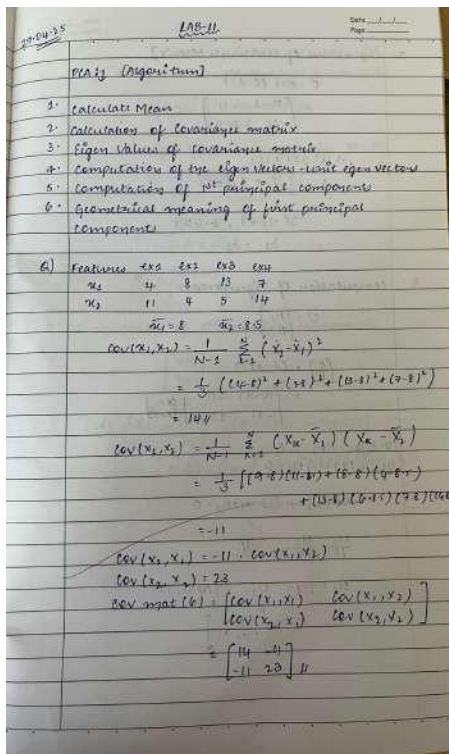 29.04.25
LAB-11
Date __/__/__
Page ____
PCA:- [Algorithm]
1. Calculate Mean
2. Calculation of covariance matrix
3. Eigen Values of covariance matrix
4. Computation of the eigen vectors-unit eigen vectors
5. Computation of 1st principal components
6. Geometrical meaning of first principal
components
Q) Features ex1 ex2 ex3 ex4
x₁ 4 8 13 7
x₂ 11 4 5 14
x̄₁ = 8 x̄₂ = 8.5
cov(x₁,x₁) = 1/(N-1) Σ (x₁ - x̄₁)²
= 1/3 ((4-8)² + (8-8)² + (13-8)² + (7-8)²)
= 14//
cov(x₁,x₂) = 1/(N-1) Σ (x₁ₖ - x̄₁) (x₂ₖ - x̄₂)
= 1/3 [(4-8)(11-8.5)+(8-8)(4-8.5)
+ (13-8)(5-8.5)(7-8)(14-8
= -11
cov(x₂,x₁) = -11 . cov(x₁,x₂)
cov(x₂,x₂) = 23
cov mat (6) = [cov(x₁,x₁) cov(x₁,x₂)
cov(x₂,x₁) cov(x₂,x₂)]
= [14 -11
-11 23]//